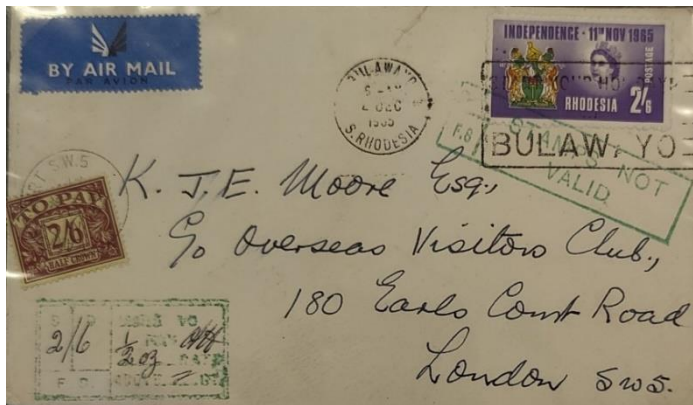 BY AIR MAIL
PAR AVION
BULAWAYO
2 DEC
1965
S. RHODESIA
INDEPENDENCE · 11TH NOV 1965
POSTAGE
RHODESIA 2/6
BULAWAYO
F.B
STAMPS NOT
VALID
S.W.5
TO PAY
2/6
HALF CROWN
K. J. E. Moore Esq.,
c/o Overseas Visitors Club.,
180 Earls Court Road
London SW5.
2/6
1/2 oz